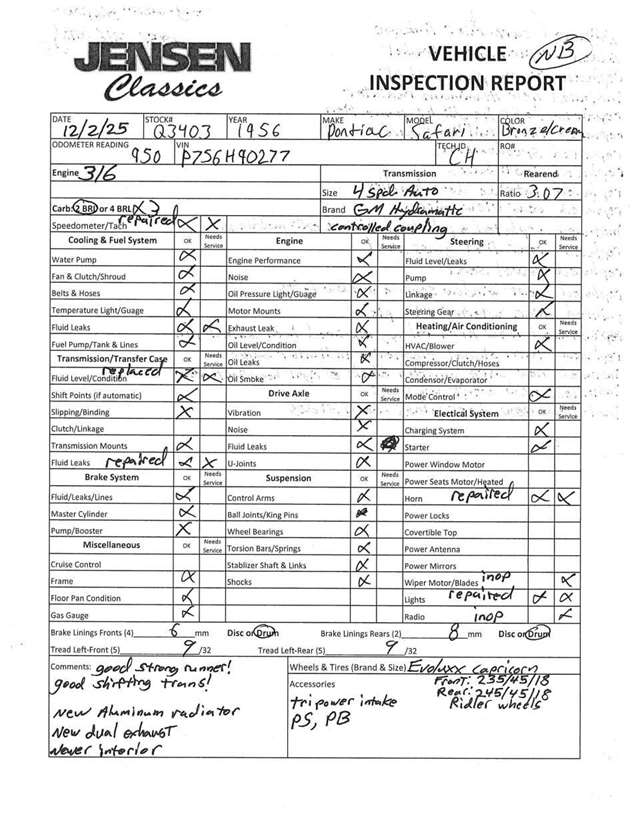 JENSEN
Classics
VEHICLE
INSPECTION REPORT
NB
DATE STOCK# YEAR MAKE MODEL COLOR
12/2/25 Q3403 1956 Pontiac Safari Bronze/Cream
ODOMETER READING 950 VIN P756H90277 TECH ID CH RO#
Engine 316 Transmission Rearend
Size 4 spd Auto Ratio 3.07
Carb: 2 BRL or 4 BRL X 3 Brand GM Hydramatic
Speedometer/Tach repaired controlled coupling
Cooling & Fuel System OK Needs Service Engine OK Needs Service Steering OK Needs Service
Water Pump Engine Performance Fluid Level/Leaks
Fan & Clutch/Shroud Noise Pump
Belts & Hoses Oil Pressure Light/Guage Linkage
Temperature Light/Guage Motor Mounts Steering Gear
Fluid Leaks Exhaust Leak Heating/Air Conditioning OK Needs Service
Fuel Pump/Tank & Lines Oil Level/Condition HVAC/Blower
Transmission/Transfer Case OK Needs Service Oil Leaks Compressor/Clutch/Hoses
Fluid Level/Condition replaced Oil Smoke Condensor/Evaporator
Shift Points (if automatic) Drive Axle OK Needs Service Mode Control
Slipping/Binding Vibration Electical System OK Needs Service
Clutch/Linkage Noise Charging System
Transmission Mounts Fluid Leaks Starter
Fluid Leaks repaired U-Joints Power Window Motor
Brake System OK Needs Service Suspension OK Needs Service Power Seats Motor/Heated
Fluid/Leaks/Lines Control Arms Horn repaired
Master Cylinder Ball Joints/King Pins Power Locks
Pump/Booster Wheel Bearings Covertible Top
Miscellaneous OK Needs Service Torsion Bars/Springs Power Antenna
Cruise Control Stablizer Shaft & Links Power Mirrors
Frame Shocks Wiper Motor/Blades inop
Floor Pan Condition Lights repaired
Gas Gauge Radio inop
Brake Linings Fronts (4) 6 mm Disc or Drum Brake Linings Rears (2) 8 mm Disc or Drum
Tread Left-Front (5) 9/32 Tread Left-Rear (5) 9/32
Comments: good strong runner!
good shifting trans!
New Aluminum radiator
New dual exhaust
Newer interior
Wheels & Tires (Brand & Size) Evoluxx Capricorn
Front: 235/45/18
Rear: 245/45/18
Ridler wheels
Accessories
tri power intake
PS, PB